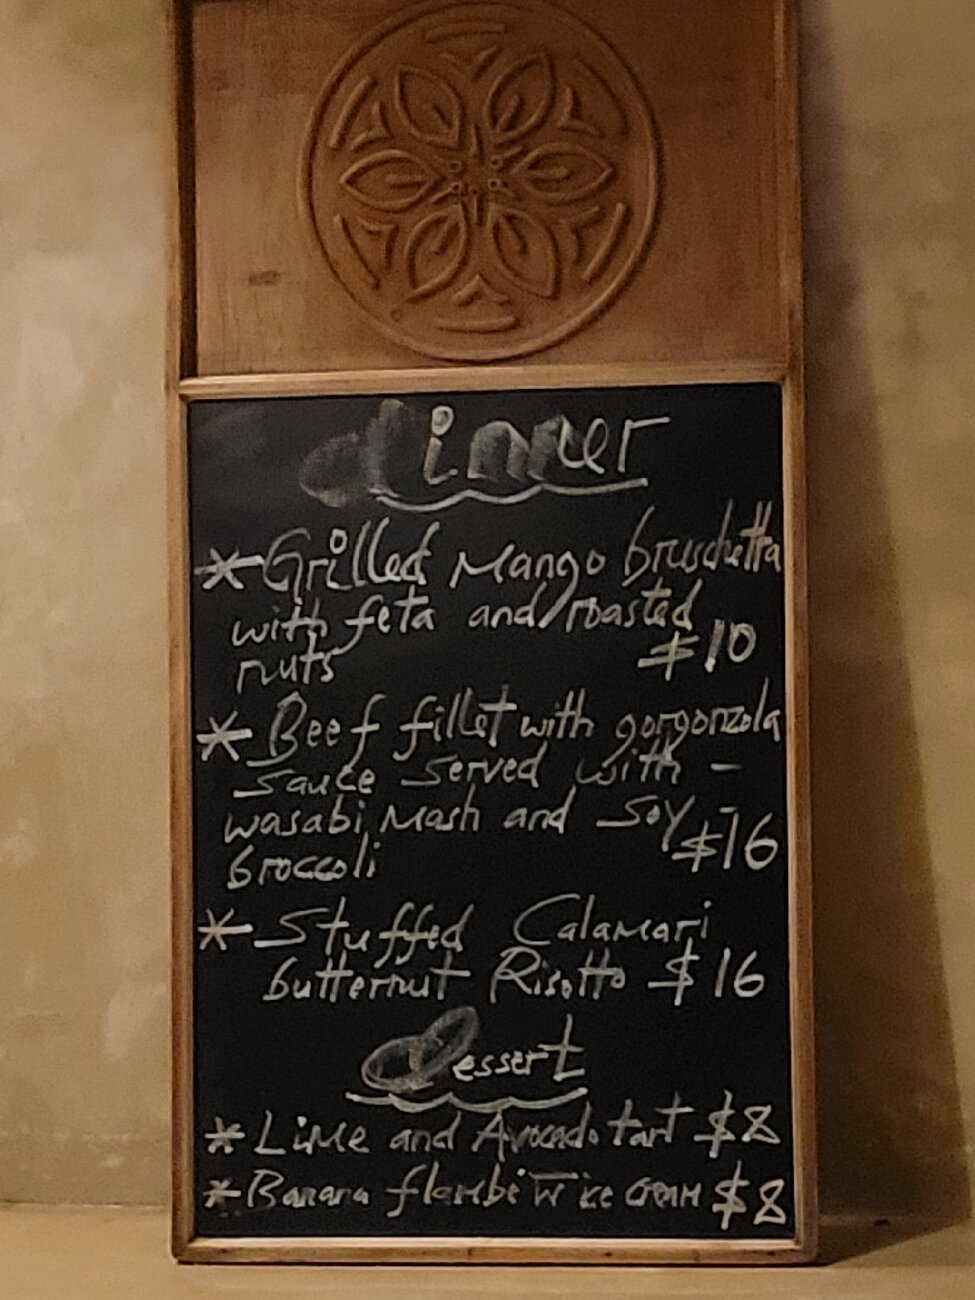 dinner
* Grilled Mango bruschetta
with feta and roasted
nuts $10
* Beef fillet with gorgonzola
sauce served with -
wasabi mash and soy
broccoli $16
* Stuffed Calamari
butternut Risotto $16
Dessert
* Lime and Avocado tart $8
* Banana flambé w ice cream $8